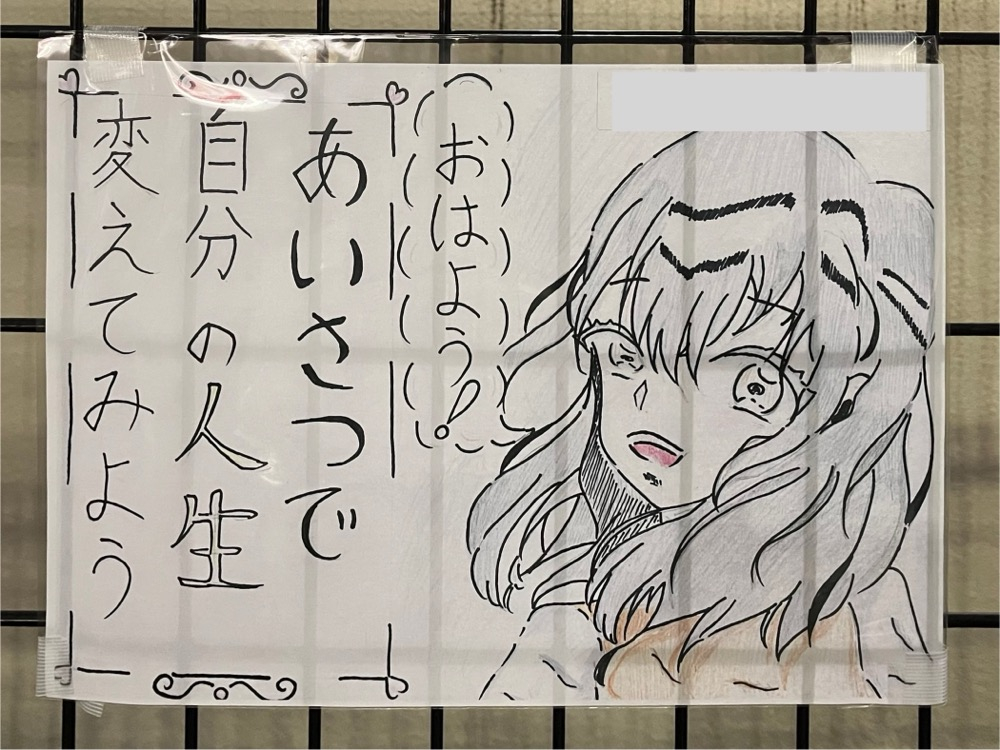 おはよう!
あいさつで
自分の人生
変えてみよう